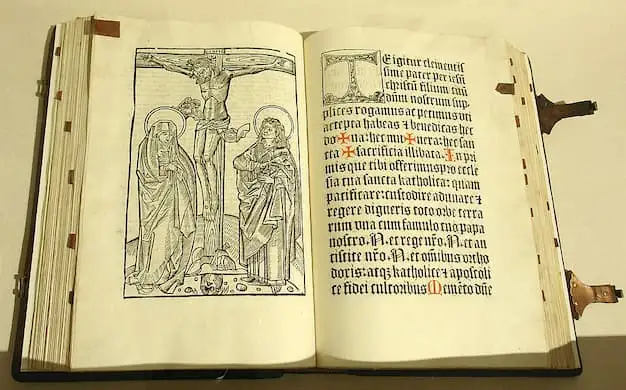 TE igitur clementis
sime pater per iesū
christū filium tuū
dn̄m nostrum sup
plices rogamus ac petimus vti
accepta habeas ⁊ benedicas hec
do✠na: hec mu✠nera: hec san
cta ✠ sacrificia illibata. In pri
mis que tibi offerimus pro eccle
sia tua sancta katholica: quam
pacificare: custodire adunare ⁊
regere digneris toto orbe terra
rum vna cum famulo tuo papa
nostro .N. et rege nr̄o .N. et an
tistite nr̄o .N. et om̄ibus ortho
doxis: atqꝫ katholice ⁊ apostoli
ce fidei cultoribus Memēto dn̄e